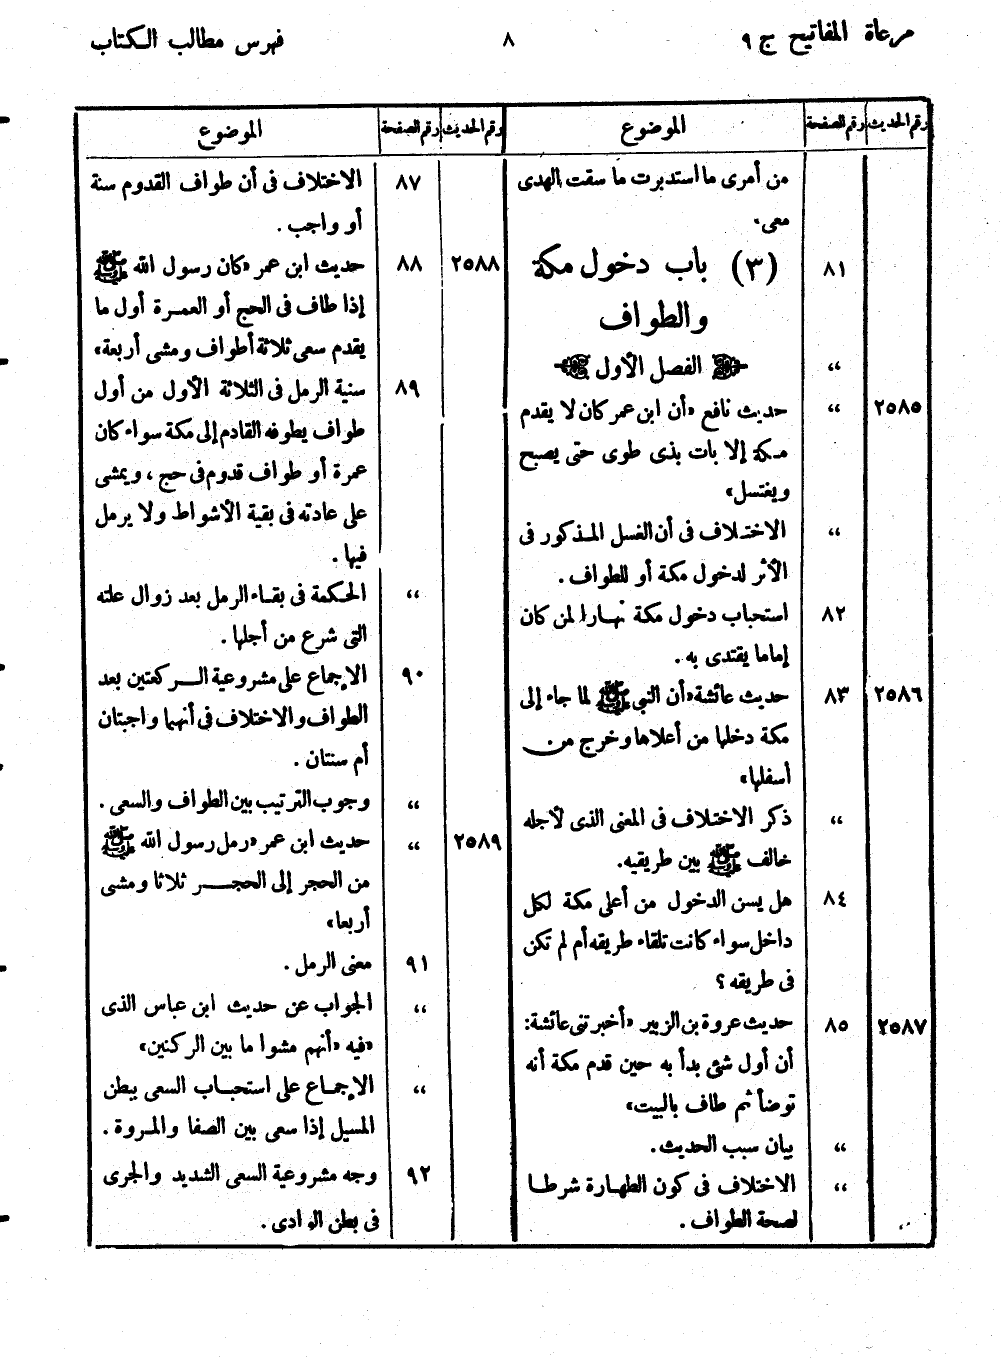 مرعاة المفاتيح ج ٩
٨
فهرس مطالب الكتاب
رقم الحديث رقم الصفحة الموضوع
من أمرى ما استدبرت ما سقت الهدى
معى.
٨١ (٣) باب دخول مكة
والطواف
،، الفصل الأول
٢٥٨٥ ،، حديث نافع «أن ابن عمر كان لا يقدم
مكة إلا بات بذى طوى حتى يصبح
ويغتسل»
،، الاختلاف فى أن الغسل المذكور فى
الأثر لدخول مكة أو للطواف.
٨٢ استحباب دخول مكة نهارا لمن كان
إماما يقتدى به.
٢٥٨٦ ٨٣ حديث عائشة «أن النبى ﷺ لما جاء إلى
مكة دخلها من أعلاها وخرج من
أسفلها»
،، ذكر الاختلاف فى المعنى الذى لأجله
خالف ﷺ بين طريقيه.
٨٤ هل يسن الدخول من أعلى مكة لكل
داخل سواء كانت تلقاء طريقه أم لم تكن
فى طريقه ؟
٢٥٨٧ ٨٥ حديث عروة بن الزبير «أخبرتنى عائشة:
أن أول شئ بدأ به حين قدم مكة أنه
توضأ ثم طاف بالبيت»
،، بيان سبب الحديث.
،، الاختلاف فى كون الطهارة شرطا
لصحة الطواف.
رقم الحديث رقم الصفحة الموضوع
٨٧ الاختلاف فى أن طواف القدوم سنة
أو واجب.
٢٥٨٨ ٨٨ حديث ابن عمر «كان رسول الله ﷺ
إذا طاف فى الحج أو العمرة أول ما
يقدم سعى ثلاثة أطواف ومشى أربعة»
٨٩ سنية الرمل فى الثلاثة الأول من أول
طواف يطوفه القادم إلى مكة سواء كان
عمرة أو طواف قدوم فى حج ، ويمشى
على عادته فى بقية الأشواط ولا يرمل
فيها.
،، الحكمة فى بقاء الرمل بعد زوال علته
التى شرع من أجلها.
٩٠ الإجماع على مشروعية الركعتين بعد
الطواف والاختلاف فى أنهما واجبتان
أم سنتان.
،، وجوب الترتيب بين الطواف والسعى.
٢٥٨٩ ،، حديث ابن عمر «رمل رسول الله ﷺ
من الحجر إلى الحجر ثلاثا ومشى
أربعا»
٩١ معنى الرمل.
،، الجواب عن حديث ابن عباس الذى
«فيه «أنهم مشوا ما بين الركنين»
،، الإجماع على استحباب السعى ببطن
المسيل إذا سعى بين الصفا والمروة.
٩٢ وجه مشروعية السعى الشديد والجرى
فى بطن الوادى.